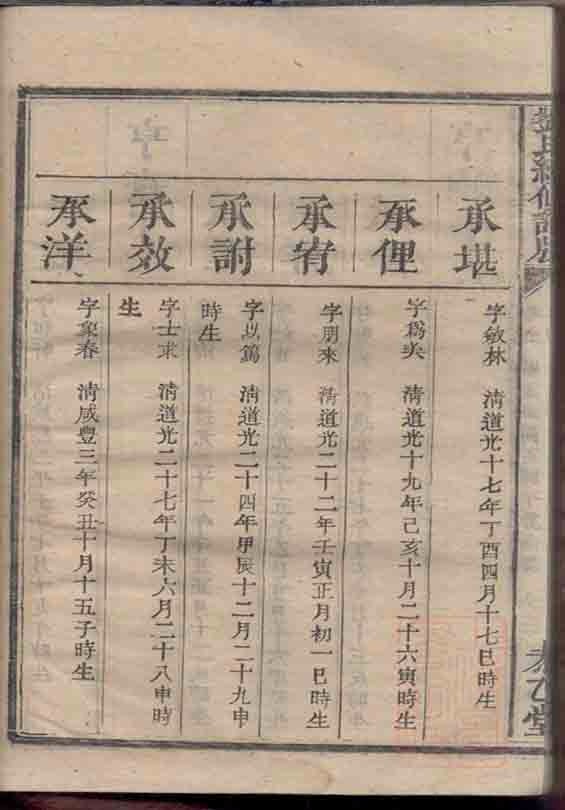 承堪
字敏林 清道光十七年丁酉四月十七巳時生
承俚
字為美 清道光十九年己亥十月二十六寅時生
承宥
字朋來 清道光二十二年壬寅正月初一巳時生
承詂
字以篤 清道光二十四年甲辰十二月二十九申
時生
承效
字士求 清道光二十七年丁未六月二十八申時
生
承洋
字象春 清咸豐三年癸丑十月十五子時生
乙堂